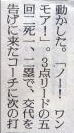 動かした。「ノー!　ワン
モア!」。3点リードの五
回二死一、二塁で、交代を
告げに来たコーチに次の打